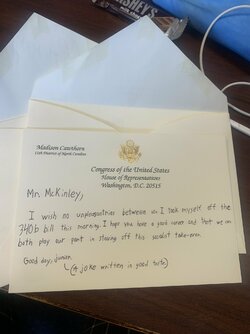 HERSHEY'S
Madison Cawthorn
11th District of North Carolina
Congress of the United States
House of Representatives
Washington, D.C. 20515
Mr. McKinley,
I wish no unpleasantries between us. I took myself off the
340b bill this morning. I hope you have a good career and that we can
both play our part in staving off this socialist take-over.
Good day, junior.
(A joke written in good taste)